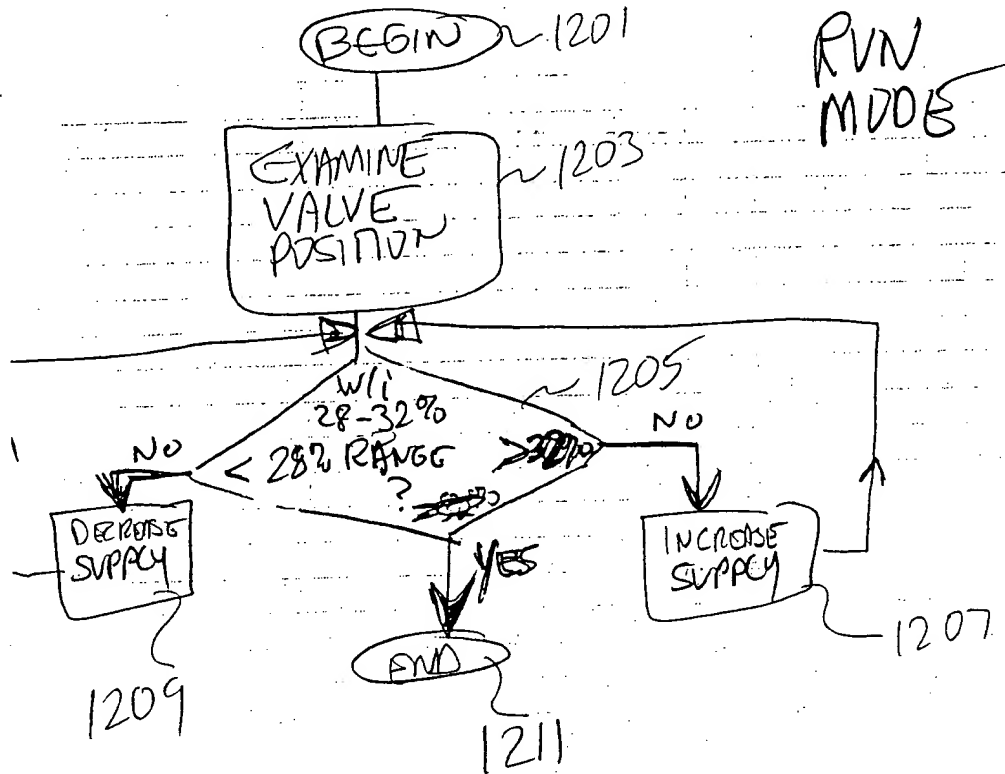 BEGIN 1201
RUN
MODE
EXAMINE
VALVE
POSITION
1203
w/i
28-32%
< 28% RANGE >32%
?
1205
NO
NO
DECREASE
SUPPLY
INCREASE
SUPPLY
YES
END
1207
1209
1211